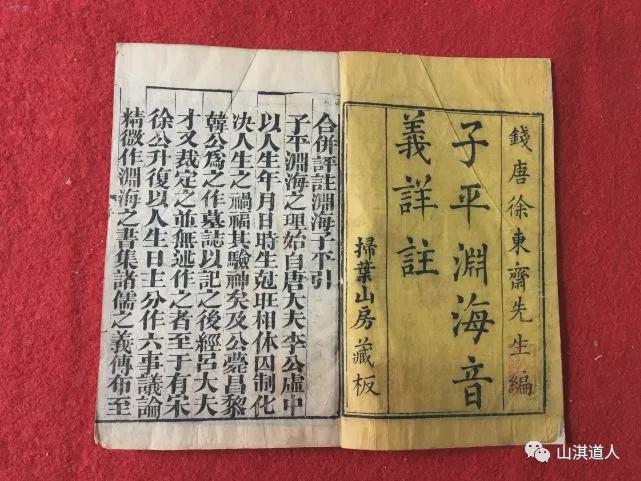 錢唐徐東齋先生編
子平淵海音
義詳註
掃葉山房藏板
合併評註淵海子平引
子平淵海之理始自唐大夫李公虛中
以人生年月日時生尅旺相休囚制化
决人生之禍福其驗神矣及公薨昌黎
韓公爲之作墓誌以記之後經呂大夫
才又裁定之並無述作之者至于有宋
徐公升復以人生日主分作六事議論
精微作淵海之書集諸儒之義傳布至
山淇道人